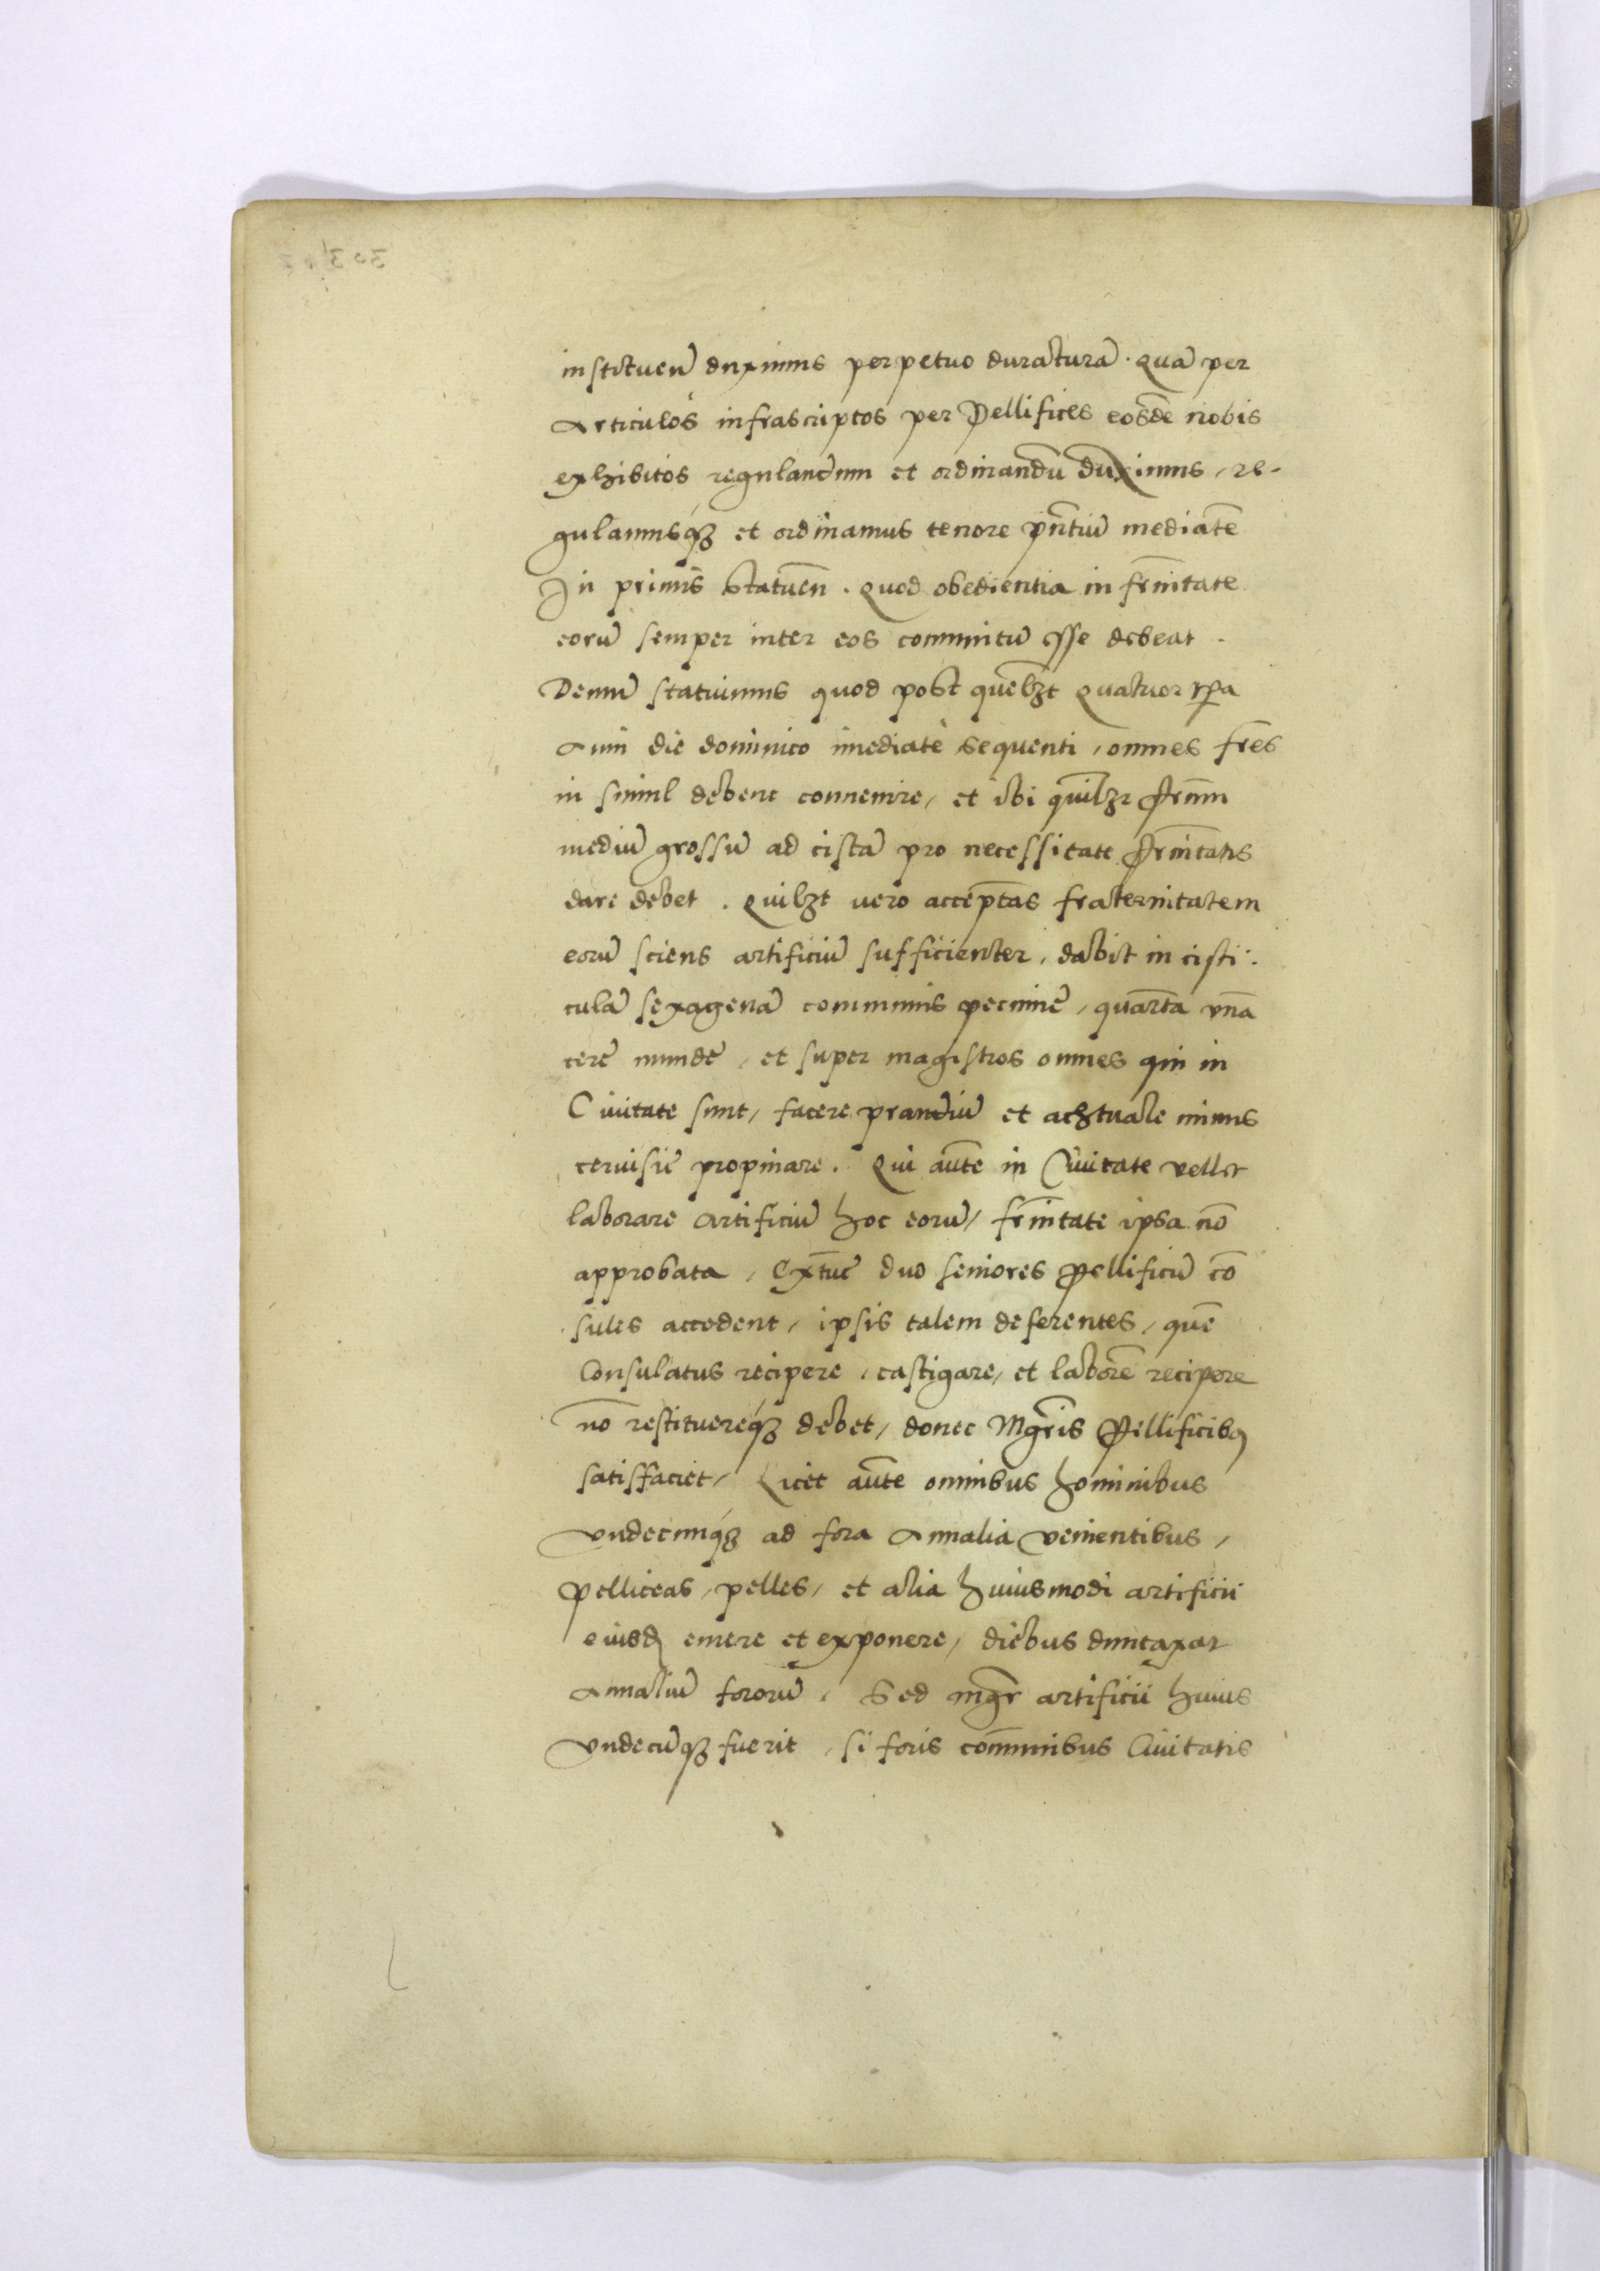 instituen̄ duximus perpetuo duraturā. Quā per
Articulos infrascriptos per Pellifices eosdē nobis
exhibitos regulandum et ordinandū duximus, re-
gulamusq́ꝫ et ordinamus tenore p̄ntiū mediātē
In primis statuen̄. Quod obedientia in fr̄nitate
eorū semper inter eos communitū esse debeat.
Demū statuimus quod post quēlꝫt Quatuor tp̄a
Anni die dominico im̄ediatè sequenti, omnes fr̄es
in simul debent conuenire, et ibi quilꝫt fr̄um
mediū grossū ad cistā pro necessitate fr̄nitatis
dare debet. Quilꝫt vero accep̄tas fraternitatem
eorū sciens artificiū sufficienter, dabit in cisti:
culā sexagenā communis pecunie, quārta vnā
cere munde, et super magistros omnes qui in
Ciuitate sunt, facere prandiū et achtuale minus
ceruisie propinare. Qui aūte in Ciuitate vellet
laborare artificiū hoc eorū, fr̄nitate ipsa nō
approbata, Extūc duo seniores Pellificū cō
sules accedent, ipsis talem deferentes, quē
Consulatus recipere, castigare, et laborē recipere
nō restituereq́ꝫ debet, donec Mgr̄is Pellificibꝰ
satisfaciet, Licet aūte omnibus hominibus
vndecunq́ꝫ ad fora Annalia venientibus,
pelliceas, pelles, et alia huiusmodi artificii
eiusdꝫ emere et exponere, diebus duntaxat
Annaliū fororū, Sed mgr̄ artificii huius
vndecūqꝫ fuerit, si foris com̄unibus Ciuitatis